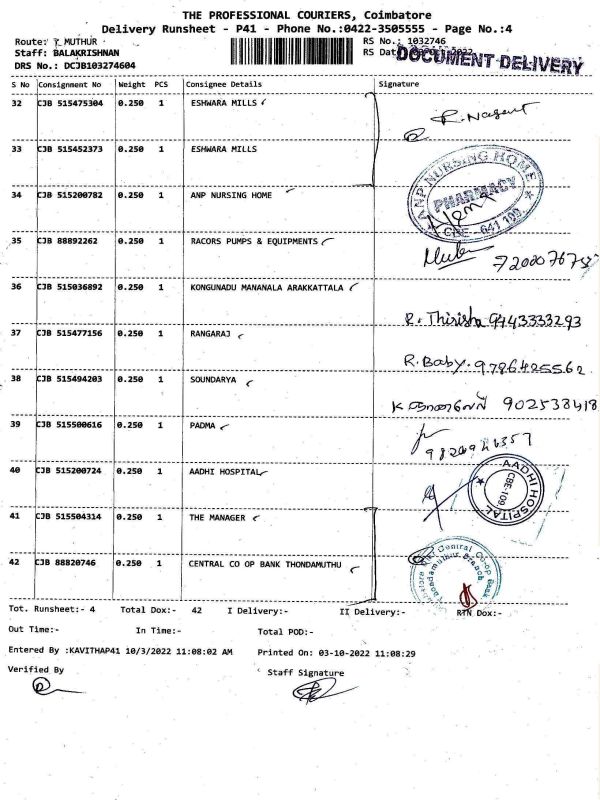 THE PROFESSIONAL COURIERS, Coimbatore
Delivery Runsheet - P41 - Phone No.:0422-3505555 - Page No.:4
Route: T MUTHUR
Staff: BALAKRISHNAN
DRS No.: DCJB103274604
RS No.: 1032746
RS Dat
DOCUMENT DELIVERY
S No Consignment No Weight PCS Consignee Details Signature
32 CJB 515475304 0.250 1 ESHWARA MILLS
R. Nagent
33 CJB 515452373 0.250 1 ESHWARA MILLS
34 CJB 515200782 0.250 1 ANP NURSING HOME
ANP NURSING HOME
PHARMACY
CBE - 641 109.
35 CJB 88892262 0.250 1 RACORS PUMPS & EQUIPMENTS
36 CJB 515036892 0.250 1 KONGUNADU MANANALA ARAKKATTALA
R. Thirisha 9443333293
37 CJB 515477156 0.250 1 RANGARAJ
R. Baby. 9786425562
38 CJB 515494203 0.250 1 SOUNDARYA
K 902538418
39 CJB 515500616 0.250 1 PADMA
40 CJB 515200724 0.250 1 AADHI HOSPITAL
AADHI HOSPITAL
CBE-109
41 CJB 515504314 0.250 1 THE MANAGER
42 CJB 88820746 0.250 1 CENTRAL CO OP BANK THONDAMUTHU
Central Co-op Bank
Thondamuthur Branch
Tot. Runsheet:- 4 Total Dox:- 42 I Delivery:- II Delivery:- RTN Dox:-
Out Time:- In Time:- Total POD:-
Entered By :KAVITHAP41 10/3/2022 11:08:02 AM Printed On: 03-10-2022 11:08:29
Verified By Staff Signature